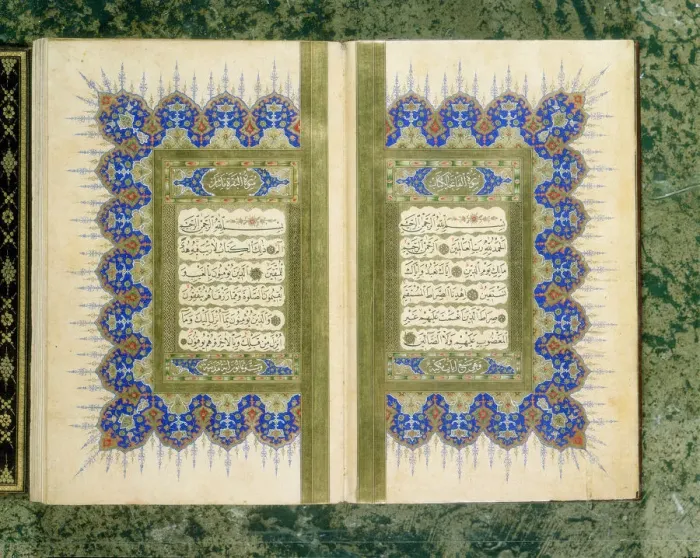 سورة الفاتحة الكتاب
بسم الله الرحمن الرحيم
الحمد لله رب العالمين الرحمن الرحيم
مالك يوم الدين اياك نعبد واياك
نستعين اهدنا الصراط المستقيم
صراط الذين انعمت عليهم غير
المغضوب عليهم ولا الضالين
وهى سبع ايات مكية
سورة البقرة
بسم الله الرحمن الرحيم
الم ذلك الكتاب لا ريب فيه هدى
للمتقين الذين يؤمنون بالغيب و
يقيمون الصلوة ومما رزقناهم ينفقون
والذين يؤمنون بما انزل اليك وما
انزل من قبلك وبالاخرة هم يوقنون
اية مدنية